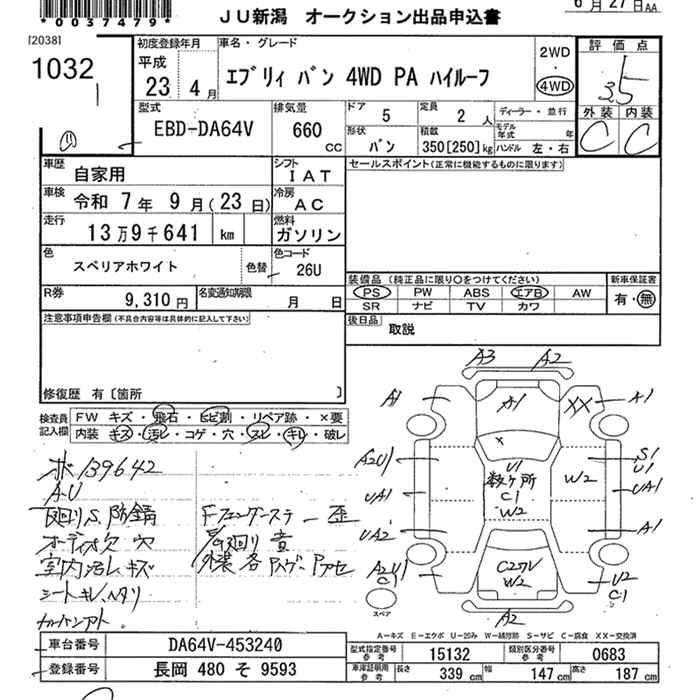 *0037479*
JU新潟 オークション出品申込書
6月27日AA
[2038]
1032
初度登録年月
平成
23 4月
車名・グレード
エブリィ バン 4WD PA ハイルーフ
2WD
・
4WD
評価点
3.5
外装 内装
C C
型式
EBD-DA64V
排気量
660
CC
ドア
5
定員
2 人
ディーラー・並行
モデル年式 年
形状
バン
積載
350[250]kg
ハンドル 左・右
車歴
自家用
シフト
IAT
セールスポイント(正常に機能するものに限ります)
車検
令和 7年 9月(23日)
冷房
AC
走行
13万9千641 km
燃料
ガソリン
色
スペリアホワイト
色替
色コード
26U
R券
9,310円
名変通知期限
月 日
装備品 (純正品に限り○をつけてください)
PS PW ABS エアB AW
SR ナビ TV カワ
新車保証書
有・無
後日品
取説
注意事項申告欄(不具合内容等は具体的に記入して下さい)
修復歴 有[箇所 ]
検査員記入欄
FW キズ・飛石・ヒビ割・リペア跡・×要
内装 キズ・汚レ・コゲ・穴・スレ・キレ・破レ
ボ 139642
A.U
下廻りS.防錆
オーディオ欠 穴
室内汚レ、キズ
シートキレ、ヘタリ
Fフェンダーステー歪
A3 A2
A1 A1 XX A1
A2U
UA1
UA2
A2U
C1
U1
数ヶ所
C1
W2
W2
S1
U1
UA1
A1
U2
C1
W2
A2
スペア
A-キズ E-エクボ U-凹み W-補修跡 S-サビ C-腐食 XX-交換済
車台番号
DA64V-453240
登録番号
長岡 480 そ 9593
型式指定番号
参考
15132
類別区分番号
参考
0683
車庫証明用
参考
長さ
339 cm
幅
147 cm
高さ
187 cm